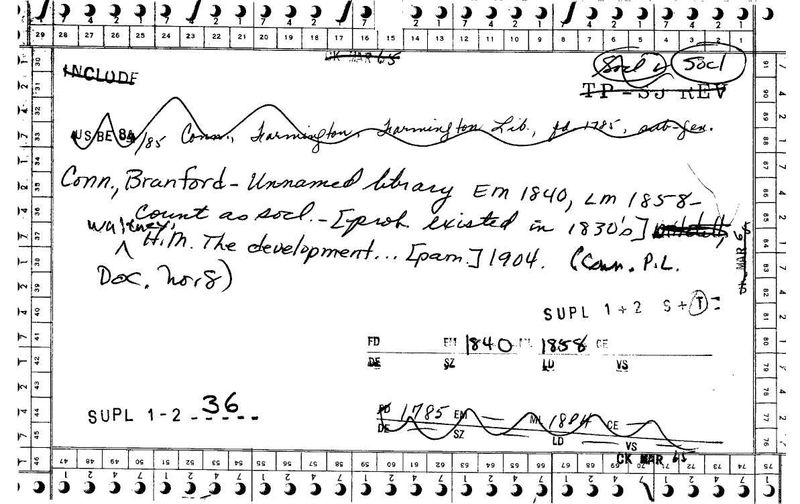 29 28 27 26 25 24 23 22 21 20 19 18 17 16 15 14 13 12 11 10 9 8 7 6 5 4 3 2 1
CK MAR 65
INCLUDE
Socl Socl
TP - SJ REV
US BE 84/85 Conn., Farmington, Farmington Lib., fd 1785, sub-gen.
Conn., Branford - Unnamed library Em 1840, Lm 1858 -
Count as socl. - [prob. existed in 1830's]
Walkney,
H.M. The development... [pam.] 1904. (Conn. P.L.
Doc. no. 8)
CK MAR 65
SUPL 1 + 2 S + T =
FD EM 1840 ML 1858 CE
DE SZ LD VS
SUPL 1-2 36
FD 1785 EM ML 1804 CE
DE SZ LD VS
CK MAR 65
30 31 32 33 34 35 36 37 38 39 40 41 42 43 44 45 46
91 90 89 88 87 86 85 84 83 82 81 80 79 78 77 76
47 48 49 50 51 52 53 54 55 56 57 58 59 60 61 62 63 64 65 66 67 68 69 70 71 72 73 74 75